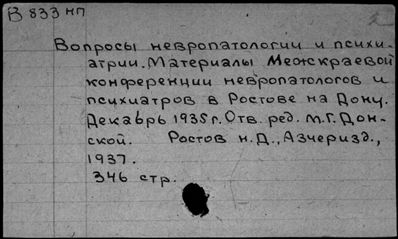 В 833 нп
Вопросы невропатологии и психи-
атрии. Материалы Межкраевой
конференции невропатологов и
психиатров в Ростове на Дону.
Декабрь 1935 г. Отв. ред. М.Г. Дон-
ской. Ростов н.Д., Азчеризд.,
1937.
346 стр.